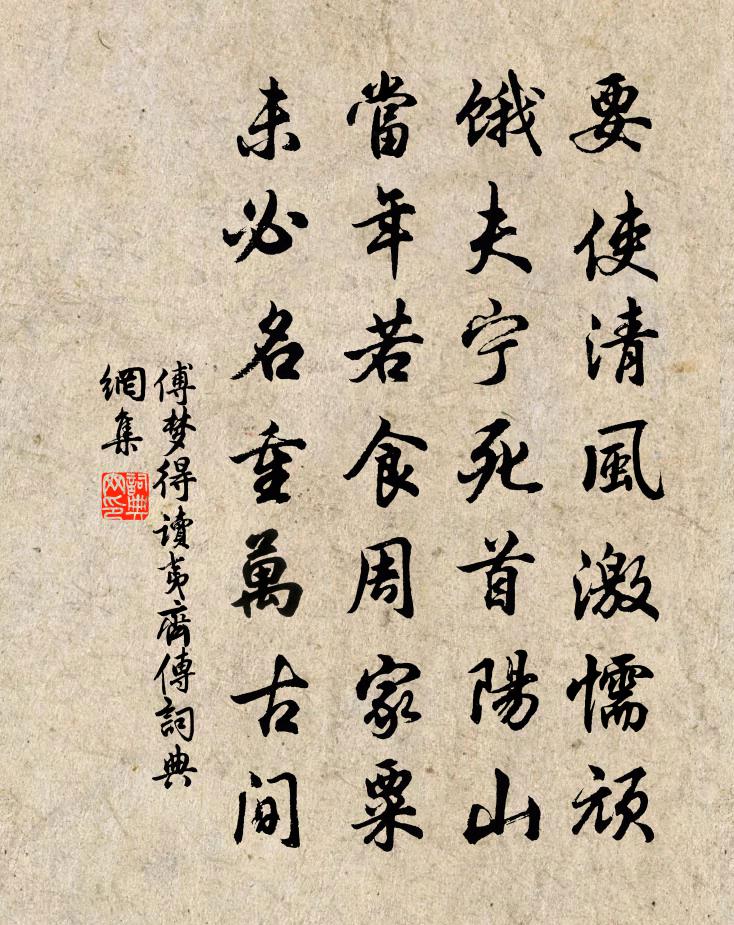 要使清風激懦頑
餓夫宁死首陽山
當年若食周家粟
未必名重萬古間
傅梦得讀夷齊傳詞典
網集
詞典
網印